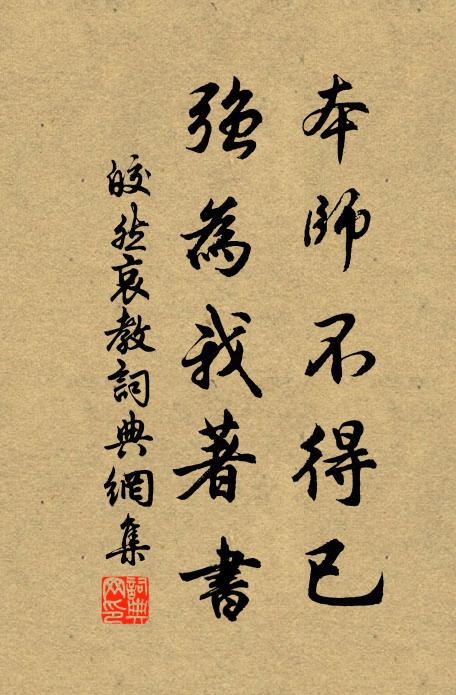 本師不得已
強為我著書
皎然哀教詞典網集
詞典網印